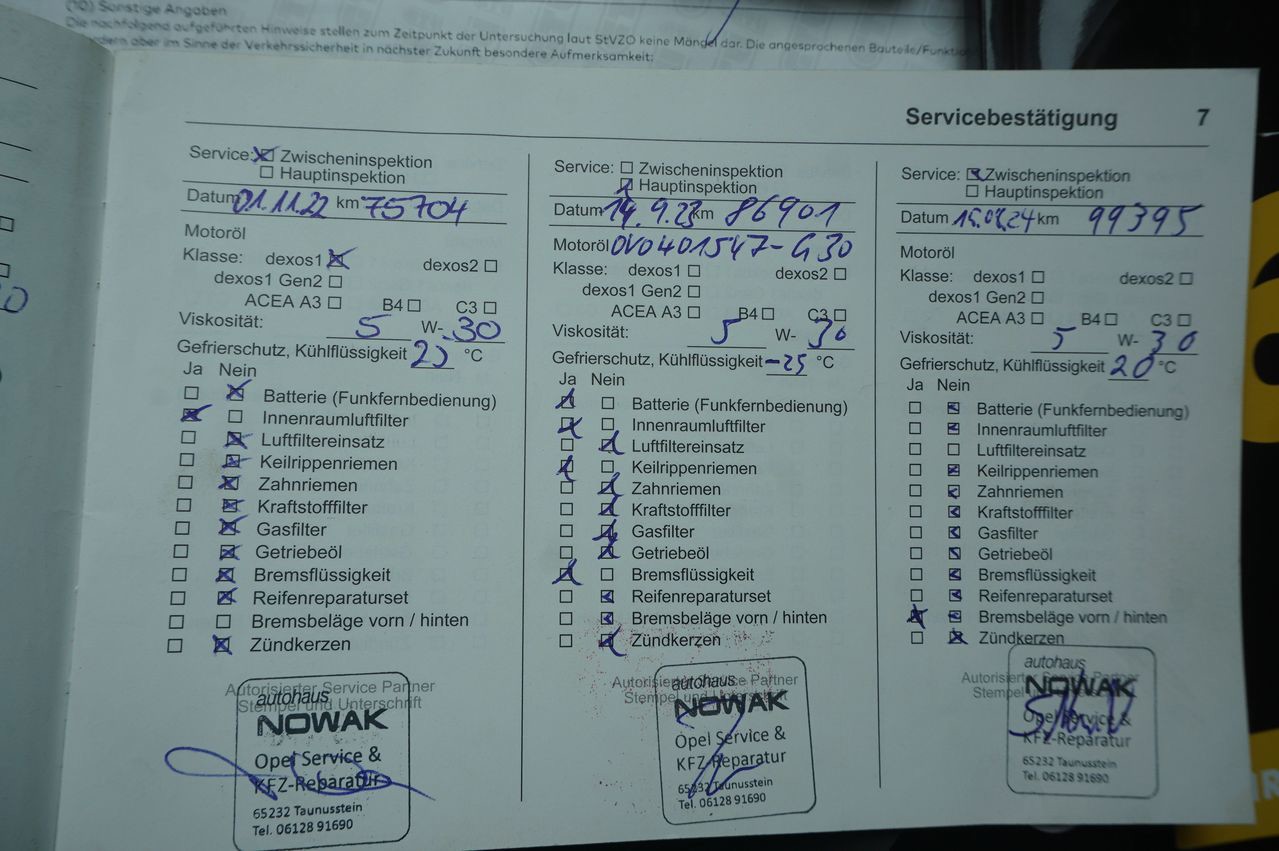 (10) Sonstige Angaben
Die nachfolgend aufgeführten Hinweise stellen zum Zeitpunkt der Untersuchung laut StVZO keine Mängel dar. Die angesprochenen Bauteile/
aber im Sinne der Verkehrssicherheit in nächster Zukunft besondere Aufmerksamkeit:
Servicebestätigung 7
Service: Zwischeninspektion
Hauptinspektion
Datum 01.11.22 km 75704
Motoröl
Klasse: dexos1 dexos2
dexos1 Gen2
ACEA A3 B4 C3
Viskosität: 5 W- 30
Gefrierschutz, Kühlflüssigkeit °C
Ja Nein
Batterie (Funkfernbedienung)
Innenraumluftfilter
Luftfiltereinsatz
Keilrippenriemen
Zahnriemen
Kraftstofffilter
Gasfilter
Getriebeöl
Bremsflüssigkeit
Reifenreparaturset
Bremsbeläge vorn / hinten
Zündkerzen
Autorisierter Service Partner
Stempel und Unterschrift
autohaus
NOWAK
Opel Service &
KFZ-Reparatur
65232 Taunusstein
Tel. 06128 91690
Service: Zwischeninspektion
Hauptinspektion
Datum 14.9.23 km 86901
Motoröl OV0401547-G30
Klasse: dexos1 dexos2
dexos1 Gen2
ACEA A3 B4 C3
Viskosität: 5 W- 30
Gefrierschutz, Kühlflüssigkeit -25 °C
Ja Nein
Batterie (Funkfernbedienung)
Innenraumluftfilter
Luftfiltereinsatz
Keilrippenriemen
Zahnriemen
Kraftstofffilter
Gasfilter
Getriebeöl
Bremsflüssigkeit
Reifenreparaturset
Bremsbeläge vorn / hinten
Zündkerzen
Autorisierter Service Partner
Stempel und Unterschrift
autohaus
NOWAK
Opel Service &
KFZ-Reparatur
65232 Taunusstein
Tel. 06128 91690
Service: Zwischeninspektion
Hauptinspektion
Datum 15.08.24 km 99395
Motoröl
Klasse: dexos1 dexos2
dexos1 Gen2
ACEA A3 B4 C3
Viskosität: 5 W- 30
Gefrierschutz, Kühlflüssigkeit 20 °C
Ja Nein
Batterie (Funkfernbedienung)
Innenraumluftfilter
Luftfiltereinsatz
Keilrippenriemen
Zahnriemen
Kraftstofffilter
Gasfilter
Getriebeöl
Bremsflüssigkeit
Reifenreparaturset
Bremsbeläge vorn / hinten
Zündkerzen
Autorisierter Service Partner
Stempel
autohaus
NOWAK
Opel Service &
KFZ-Reparatur
65232 Taunusstein
Tel. 06128 91690